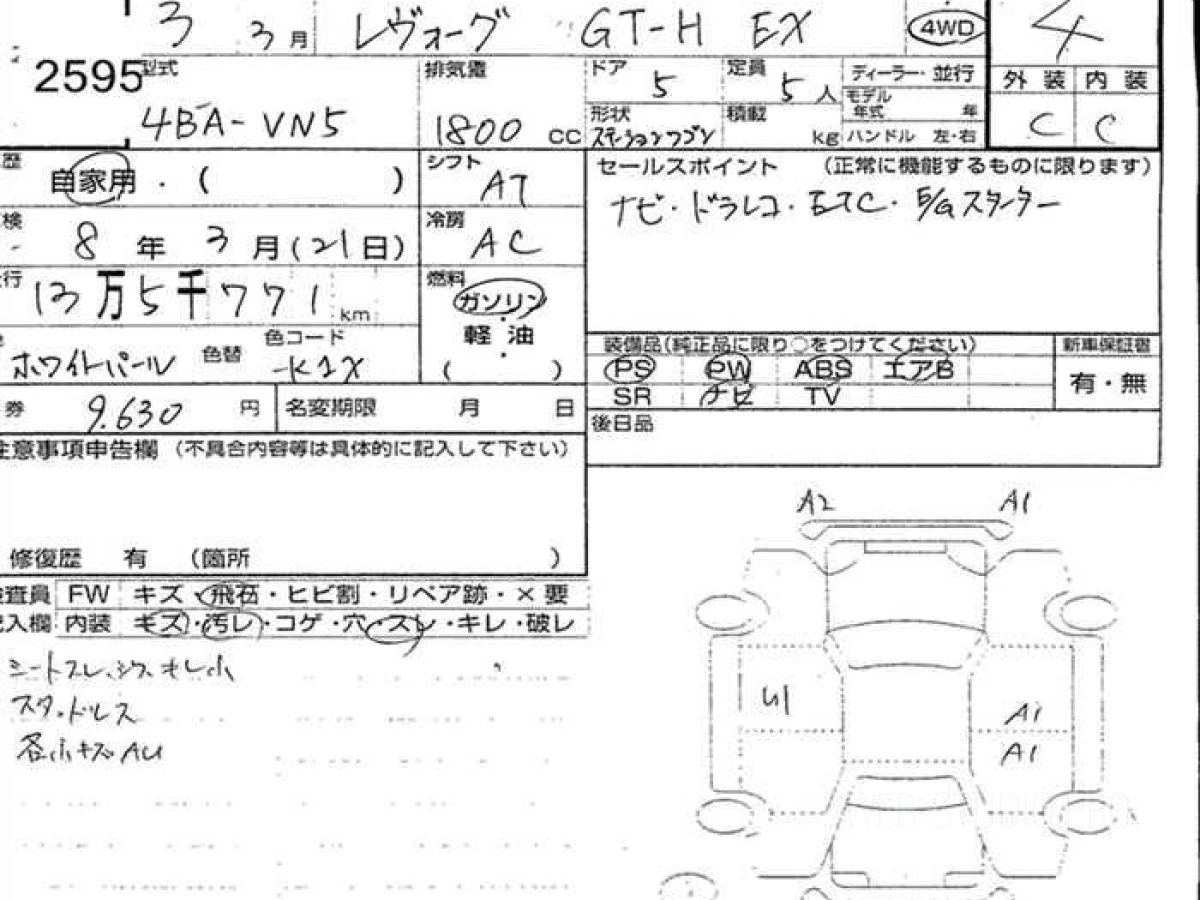 3 3月 レヴォーグ GT-H EX 4WD 4
2595 型式 排気量 ドア 5 定員 5人 ディーラー・並行 外装 内装
4BA-VN5 1800 cc 形状 ステーションワゴン 積載 kg モデル年式 年 C C
ハンドル 左・右
歴 自家用・( ) シフト AT セールスポイント (正常に機能するものに限ります)
ナビ・ドラレコ・ETC・E/Gスターター
検 8年3月(21日) 冷房 AC
行 13万5千771km 燃料 ガソリン
軽油
( )
ホワイトパール 色替 色コード K1X
装備品(純正品に限り○をつけてください) 新車保証書
PS PW ABS エアB 有・無
SR ナビ TV
券 9,630円 名変期限 月 日 後日品
注意事項申告欄 (不具合内容等は具体的に記入して下さい)
修復歴 有 (箇所 )
検査員 FW キズ・飛石・ヒビ割・リペア跡・×要
記入欄 内装 キズ・汚レ・コゲ・穴・スレ・キレ・破レ
シートスレ、シワ、キレ小
スタッドレス
各小キズAU
A2 A1
U1
A1
A1